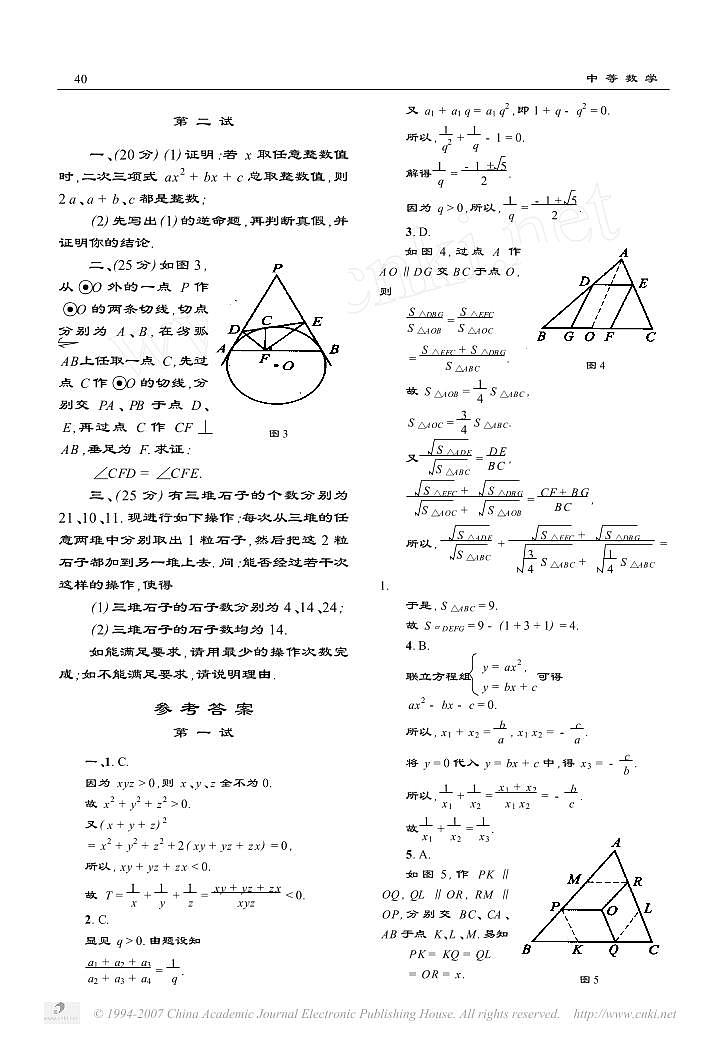 40
中 等 数 学
第 二 试
一、(20 分) (1) 证明 :若 x 取任意整数值
时 ,二次三项式 ax² + bx + c 总取整数值 ,则
2 a 、a + b 、c 都是整数 ;
(2) 先写出(1) 的逆命题 ,再判断真假 ,并
证明你的结论.
二、(25 分) 如图 3 ,
从 ⊙O 外的一点 P 作
⊙O 的两条切线 ,切点
分别为 A 、B ,在劣弧
AB上任取一点 C ,先过
点 C 作 ⊙O 的切线 ,分
别交 PA 、PB 于点 D 、
E ,再过点 C 作 CF ⊥
AB ,垂足为 F. 求证 :
∠CFD = ∠CFE.
P
C
D
E
A
F
O
B
图 3
三、(25 分) 有三堆石子的个数分别为
21 、10 、11. 现进行如下操作 :每次从三堆的任
意两堆中分别取出 1 粒石子 ,然后把这 2 粒
石子都加到另一堆上去. 问 :能否经过若干次
这样的操作 ,使得
(1) 三堆石子的石子数分别为 4 、14 、24 ;
(2) 三堆石子的石子数均为 14.
如能满足要求 ,请用最少的操作次数完
成 ;如不能满足要求 ,请说明理由.
参 考 答 案
第 一 试
一、1. C.
因为 xyz > 0 ,则 x 、y 、z 全不为 0.
故 x² + y² + z² > 0.
又( x + y + z)²
= x² + y² + z² + 2 ( xy + yz + zx) = 0 ,
所以 , xy + yz + zx < 0.
故 T = 1/x + 1/y + 1/z = (xy + yz + zx)/xyz < 0.
2. C.
显见 q > 0. 由题设知
(a₁ + a₂ + a₃)/(a₂ + a₃ + a₄) = 1/q .
又 a₁ + a₁ q = a₁ q² ,即 1 + q - q² = 0.
所以 , 1/q² + 1/q - 1 = 0.
解得 1/q = (- 1 ± √5)/2 .
因为 q > 0 ,所以 , 1/q = (- 1 + √5)/2 .
3. D.
如图 4 ,过点 A 作
AO ∥ DG 交 BC 于点 O ,
则
S△DBG/S△AOB = S△EFC/S△AOC
= (S△EFC + S△DBG)/S△ABC .
A
D
E
B
G
O
F
C
图 4
故 S△AOB = 1/4 S△ABC ,
S△AOC = 3/4 S△ABC.
又 √S△ADE/√S△ABC = DE/BC ,
(√S△EFC + √S△DBG)/(√S△AOC + √S△AOB) = (CF + BG)/BC ,
所以 , √S△ADE/√S△ABC + (√S△EFC + √S△DBG)/(√(3/4 S△ABC) + √(1/4 S△ABC)) =
1.
于是 , S△ABC = 9.
故 S▱DEFG = 9 - (1 + 3 + 1) = 4.
4. B.
联立方程组 { y = ax² ,
y = bx + c
可得
ax² - bx - c = 0.
所以 , x₁ + x₂ = b/a , x₁ x₂ = - c/a .
将 y = 0 代入 y = bx + c 中 ,得 x₃ = - c/b .
所以 , 1/x₁ + 1/x₂ = (x₁ + x₂)/(x₁ x₂) = - b/c .
故 1/x₁ + 1/x₂ = 1/x₃ .
5. A.
如图 5 ,作 PK ∥
OQ , QL ∥ OR , RM ∥
OP ,分别交 BC 、CA 、
AB 于点 K 、L 、M. 易知
PK = KQ = QL
= OR = x .
A
M
R
P
O
L
B
K
Q
C
图 5
© 1994-2007 China Academic Journal Electronic Publishing House. All rights reserved. http://www.cnki.net